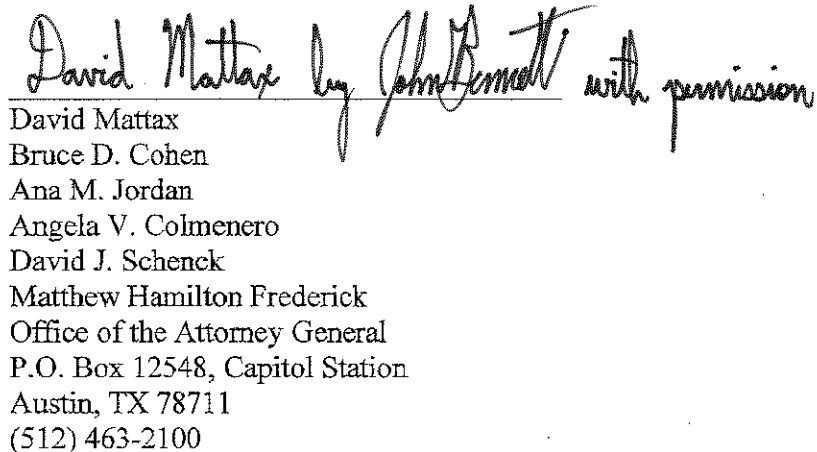 David Mattax by John Bennett with permission
David Mattax
Bruce D. Cohen
Ana M. Jordan
Angela V. Colmenero
David J. Schenck
Matthew Hamilton Frederick
Office of the Attorney General
P.O. Box 12548, Capitol Station
Austin, TX 78711
(512) 463-2100